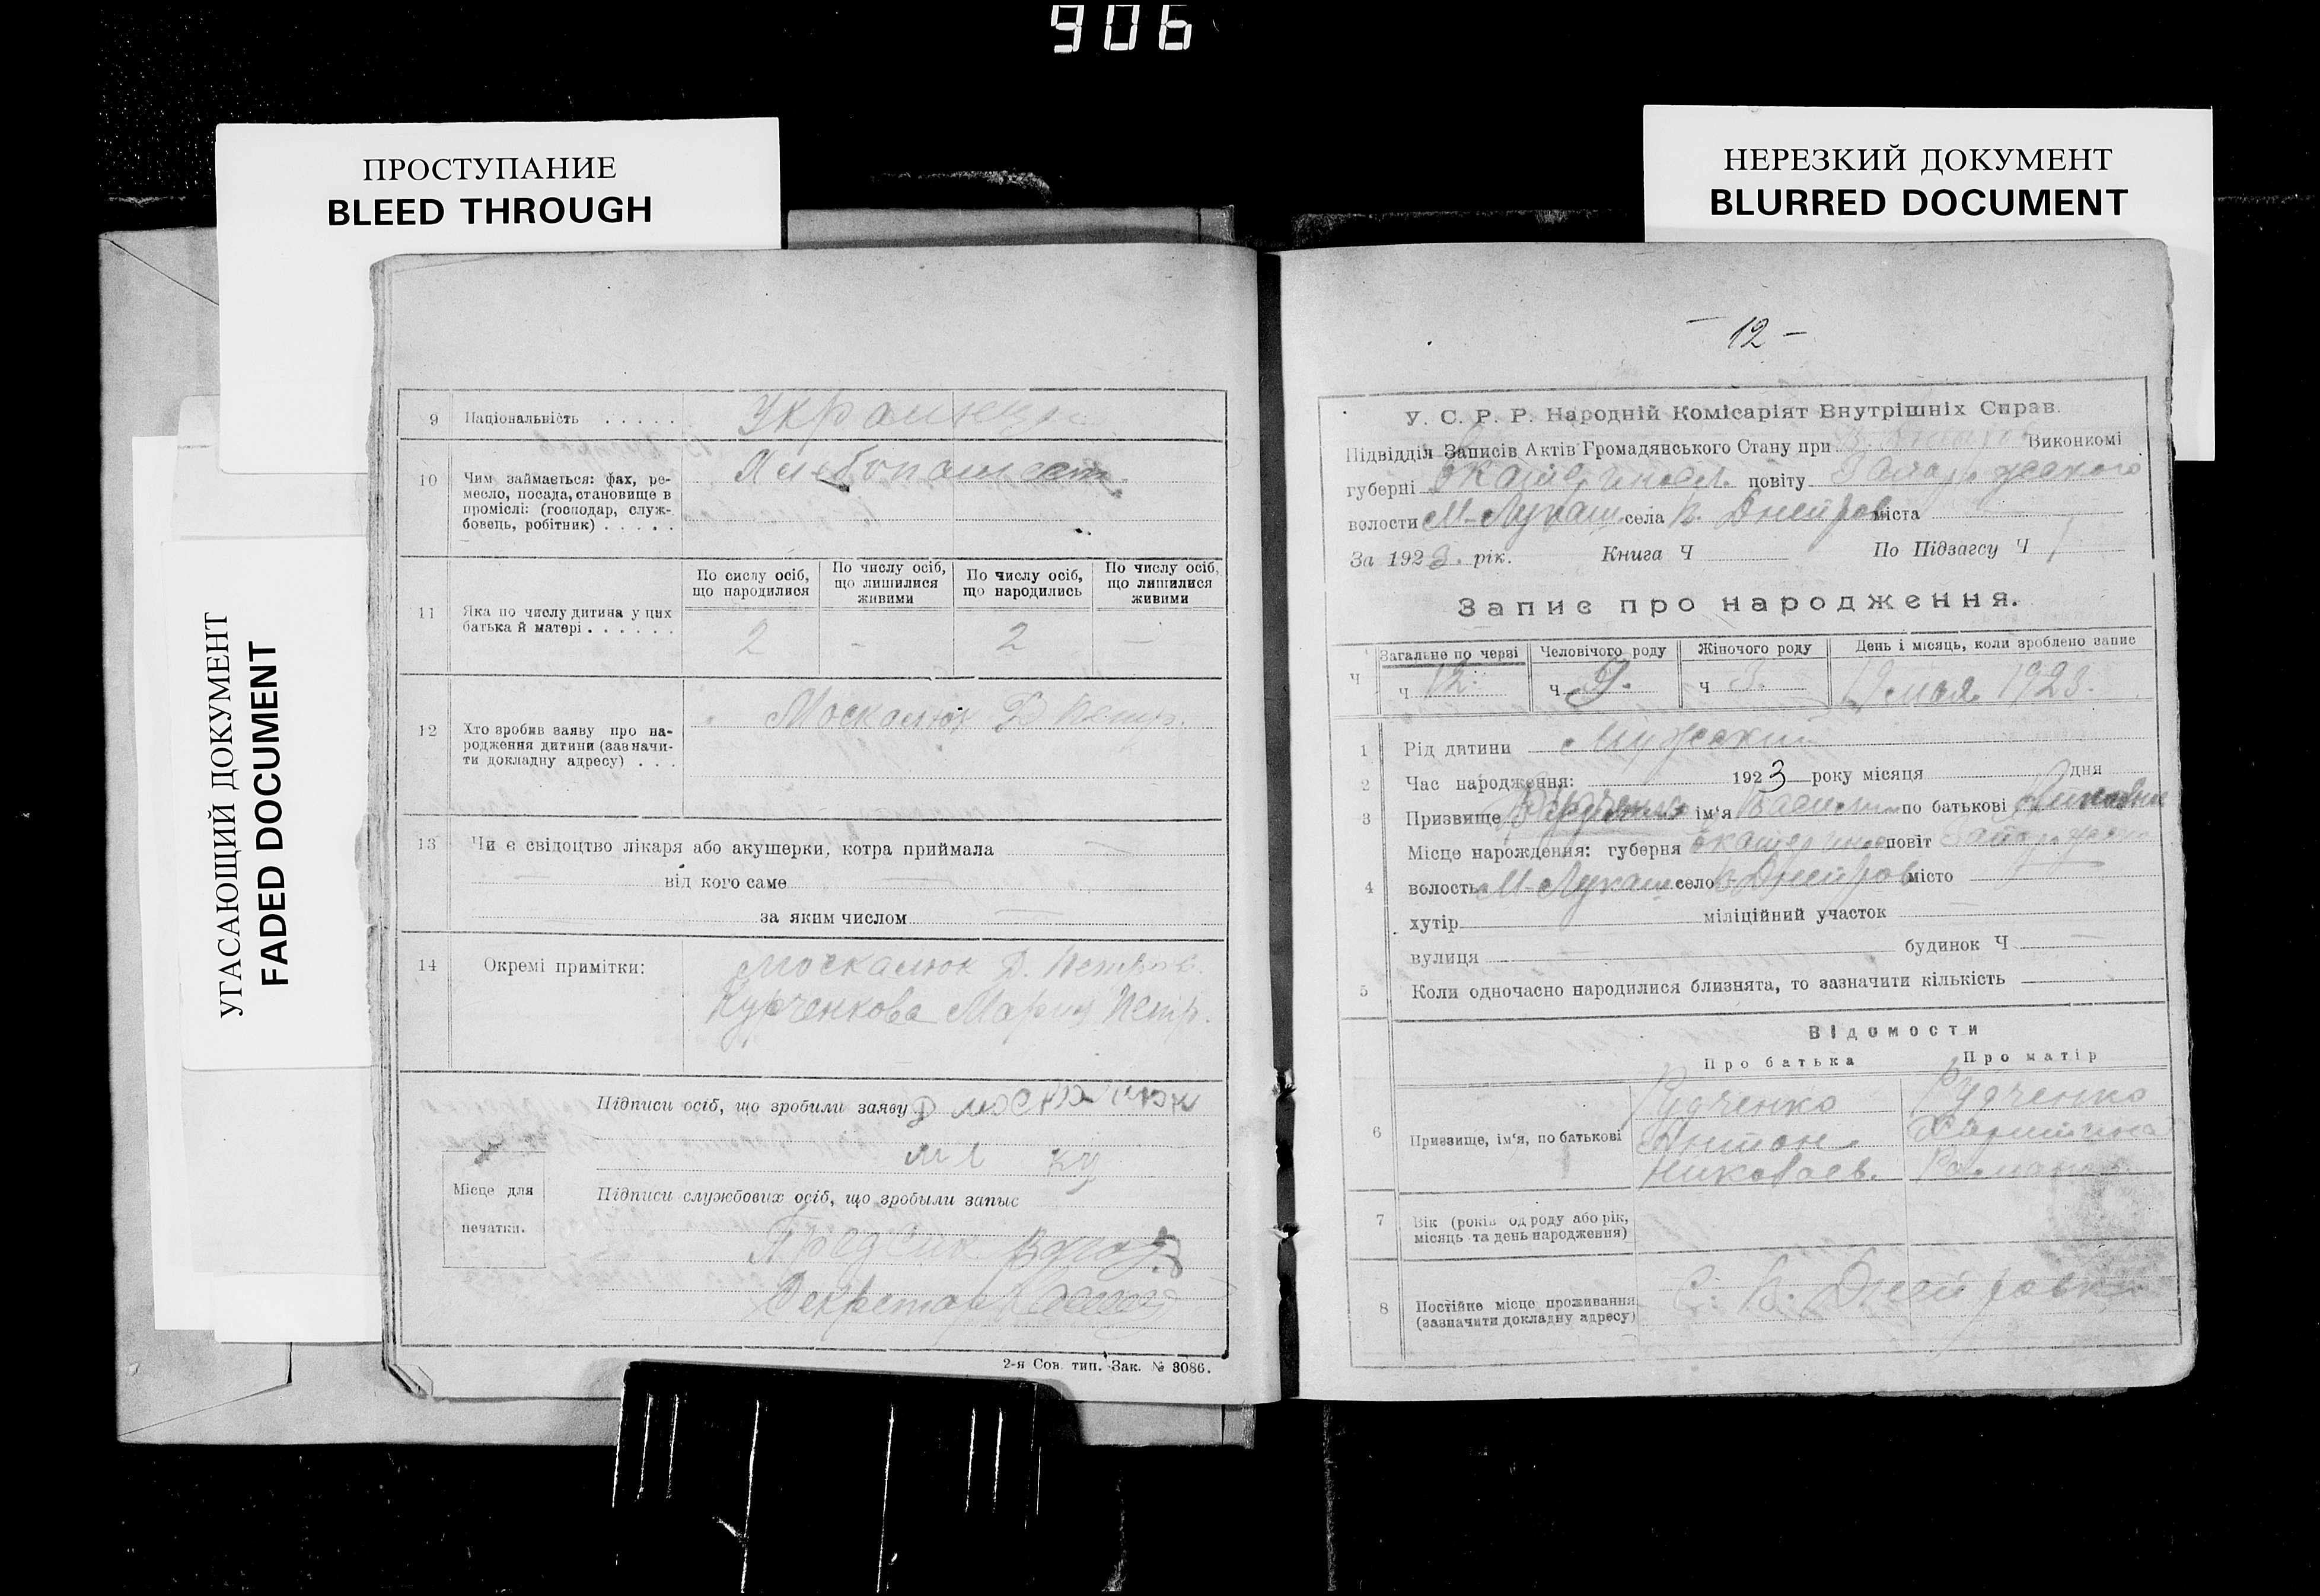 906
ПРОСТУПАНИЕ
BLEED THROUGH
НЕРЕЗКИЙ ДОКУМЕНТ
BLURRED DOCUMENT
УГАСАЮЩИЙ ДОКУМЕНТ
FADED DOCUMENT
9 Національність
10 Чим займається: фах, ре-
месло, посада, становище в
проміслі: (господар, служ-
бовець, робітник)
11 Яка по числу дитина у цих
батька й матері
По сислу осіб, що народилися
По числу осіб, що лишилися живими
По числу осіб, що народились
По числу осіб, що лишилися живими
2 - 2 -
12 Хто зробив заяву про на-
родження дитини (зазначи-
ти докладну адресу)
Москалюк Д Петр.
13 Чи є свідоцтво лікаря або акушерки, котра приймала
від кого саме
за яким числом
14 Окремі примітки:
Москалюк Д. Петров.
Курченкова Мария Петр.
Підписи осіб, що зробили заяву Д москалюк
Підписи службових осіб, що зробыли запыс
Місце для
печатки.
Секретар
2-я Сов. тип. Зак. № 3086.
- 12 -
У. С. Р. Р. Народній Комісаріят Внутрішніх Справ.
Підвідділ Записів Актів Громадянського Стану при Виконкомі
губерні повіту
волости М-Лукаш. села К. Днепров міста
За 1923 рік. Книга Ч По Підзагсу Ч
Запис про народження.
Ч Загальне по черзі Человічого роду Жіночого роду День і місяць, коли зроблено запис
ч 12. ч 9. ч 3. 19 мая 1923.
1 Рід дитини Мужский
2 Час народження: 1923 року місяця дня
3 Призвище ім'я по батькові
Місце народження: губерня повіт
4 волость М-Лукаш село К-Днепров місто
хутір міліційний участок
вулиця будинок Ч
5 Коли одночасно народилися близнята, то зазначити кількість
Відомости
Про батька Про матір
6 Призвище, ім'я, по батькові
Рудченко Рудченко
Антон
Николаев. Романов.
7 Вік (років од роду або рік,
місяць та день народження)
8 Постійне місце проживання
(зазначити докладну адресу)
С. К. Днепровка